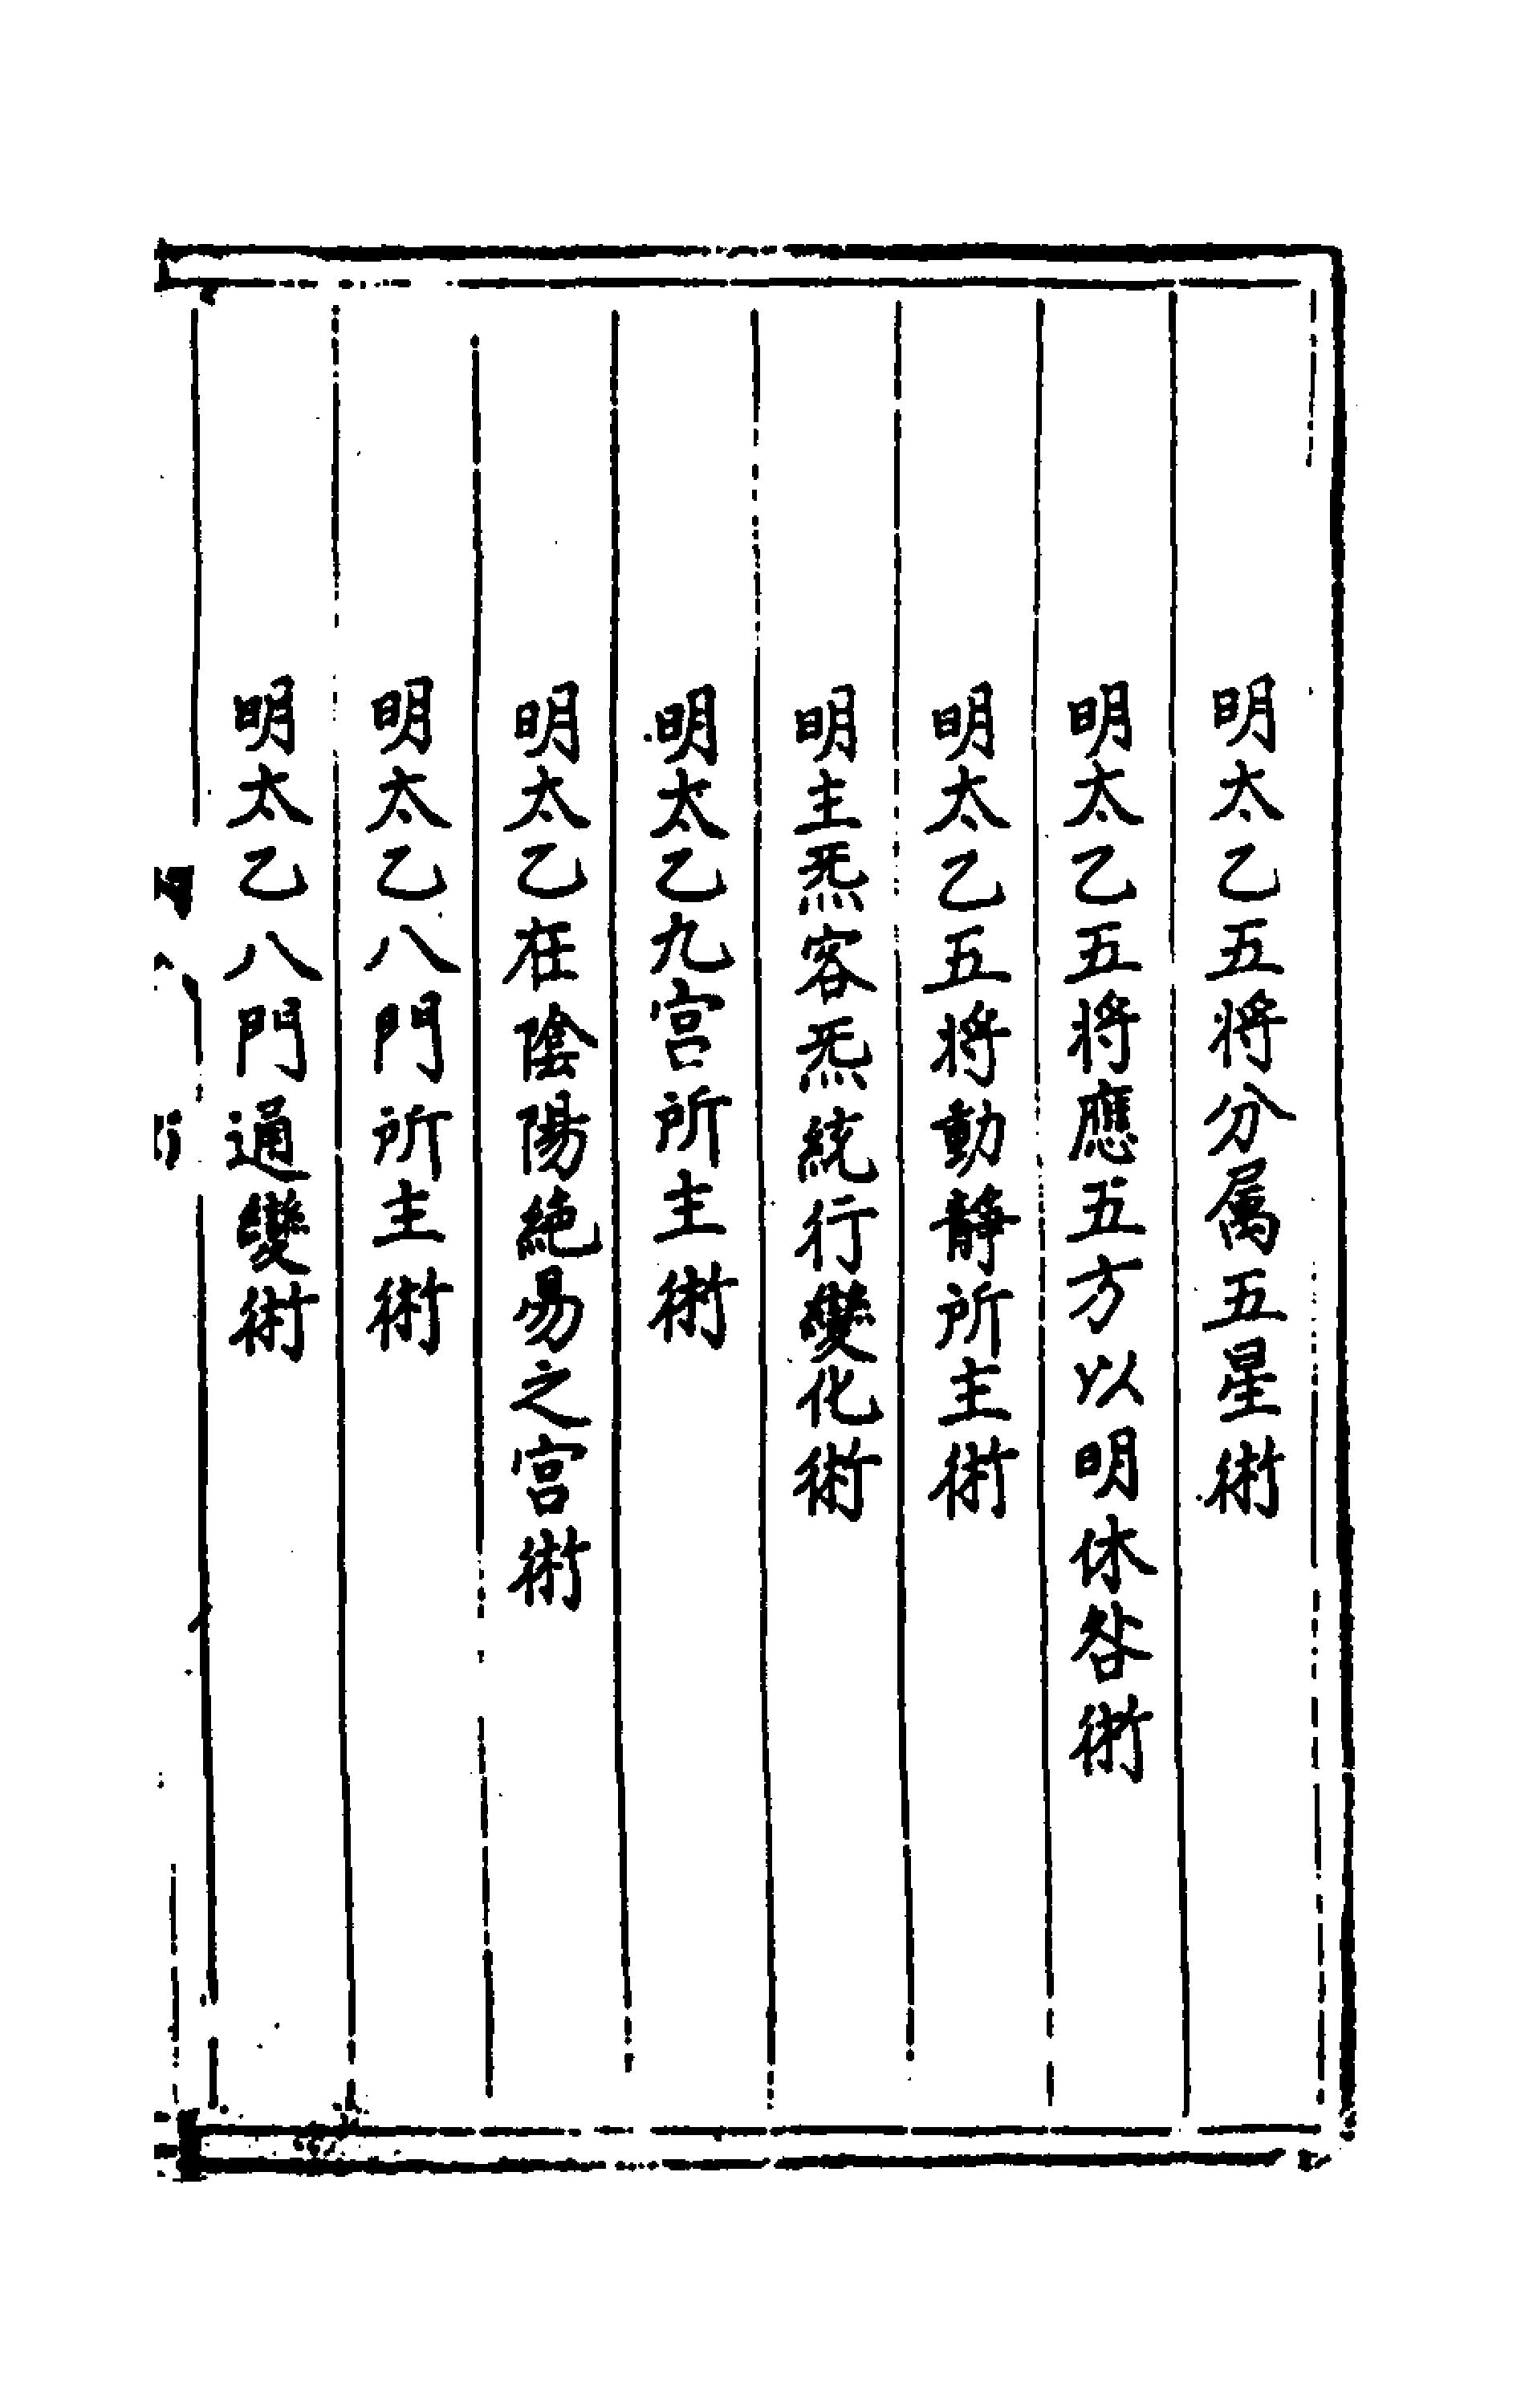 明太乙五将分属五星術
明太乙五将應五方以明休咎術
明太乙五将動静所主術
明主炁客炁統行變化術
明太乙九宫所主術
明太乙在陰陽絶昜之宫術
明太乙八門所主術
明太乙八門通變術